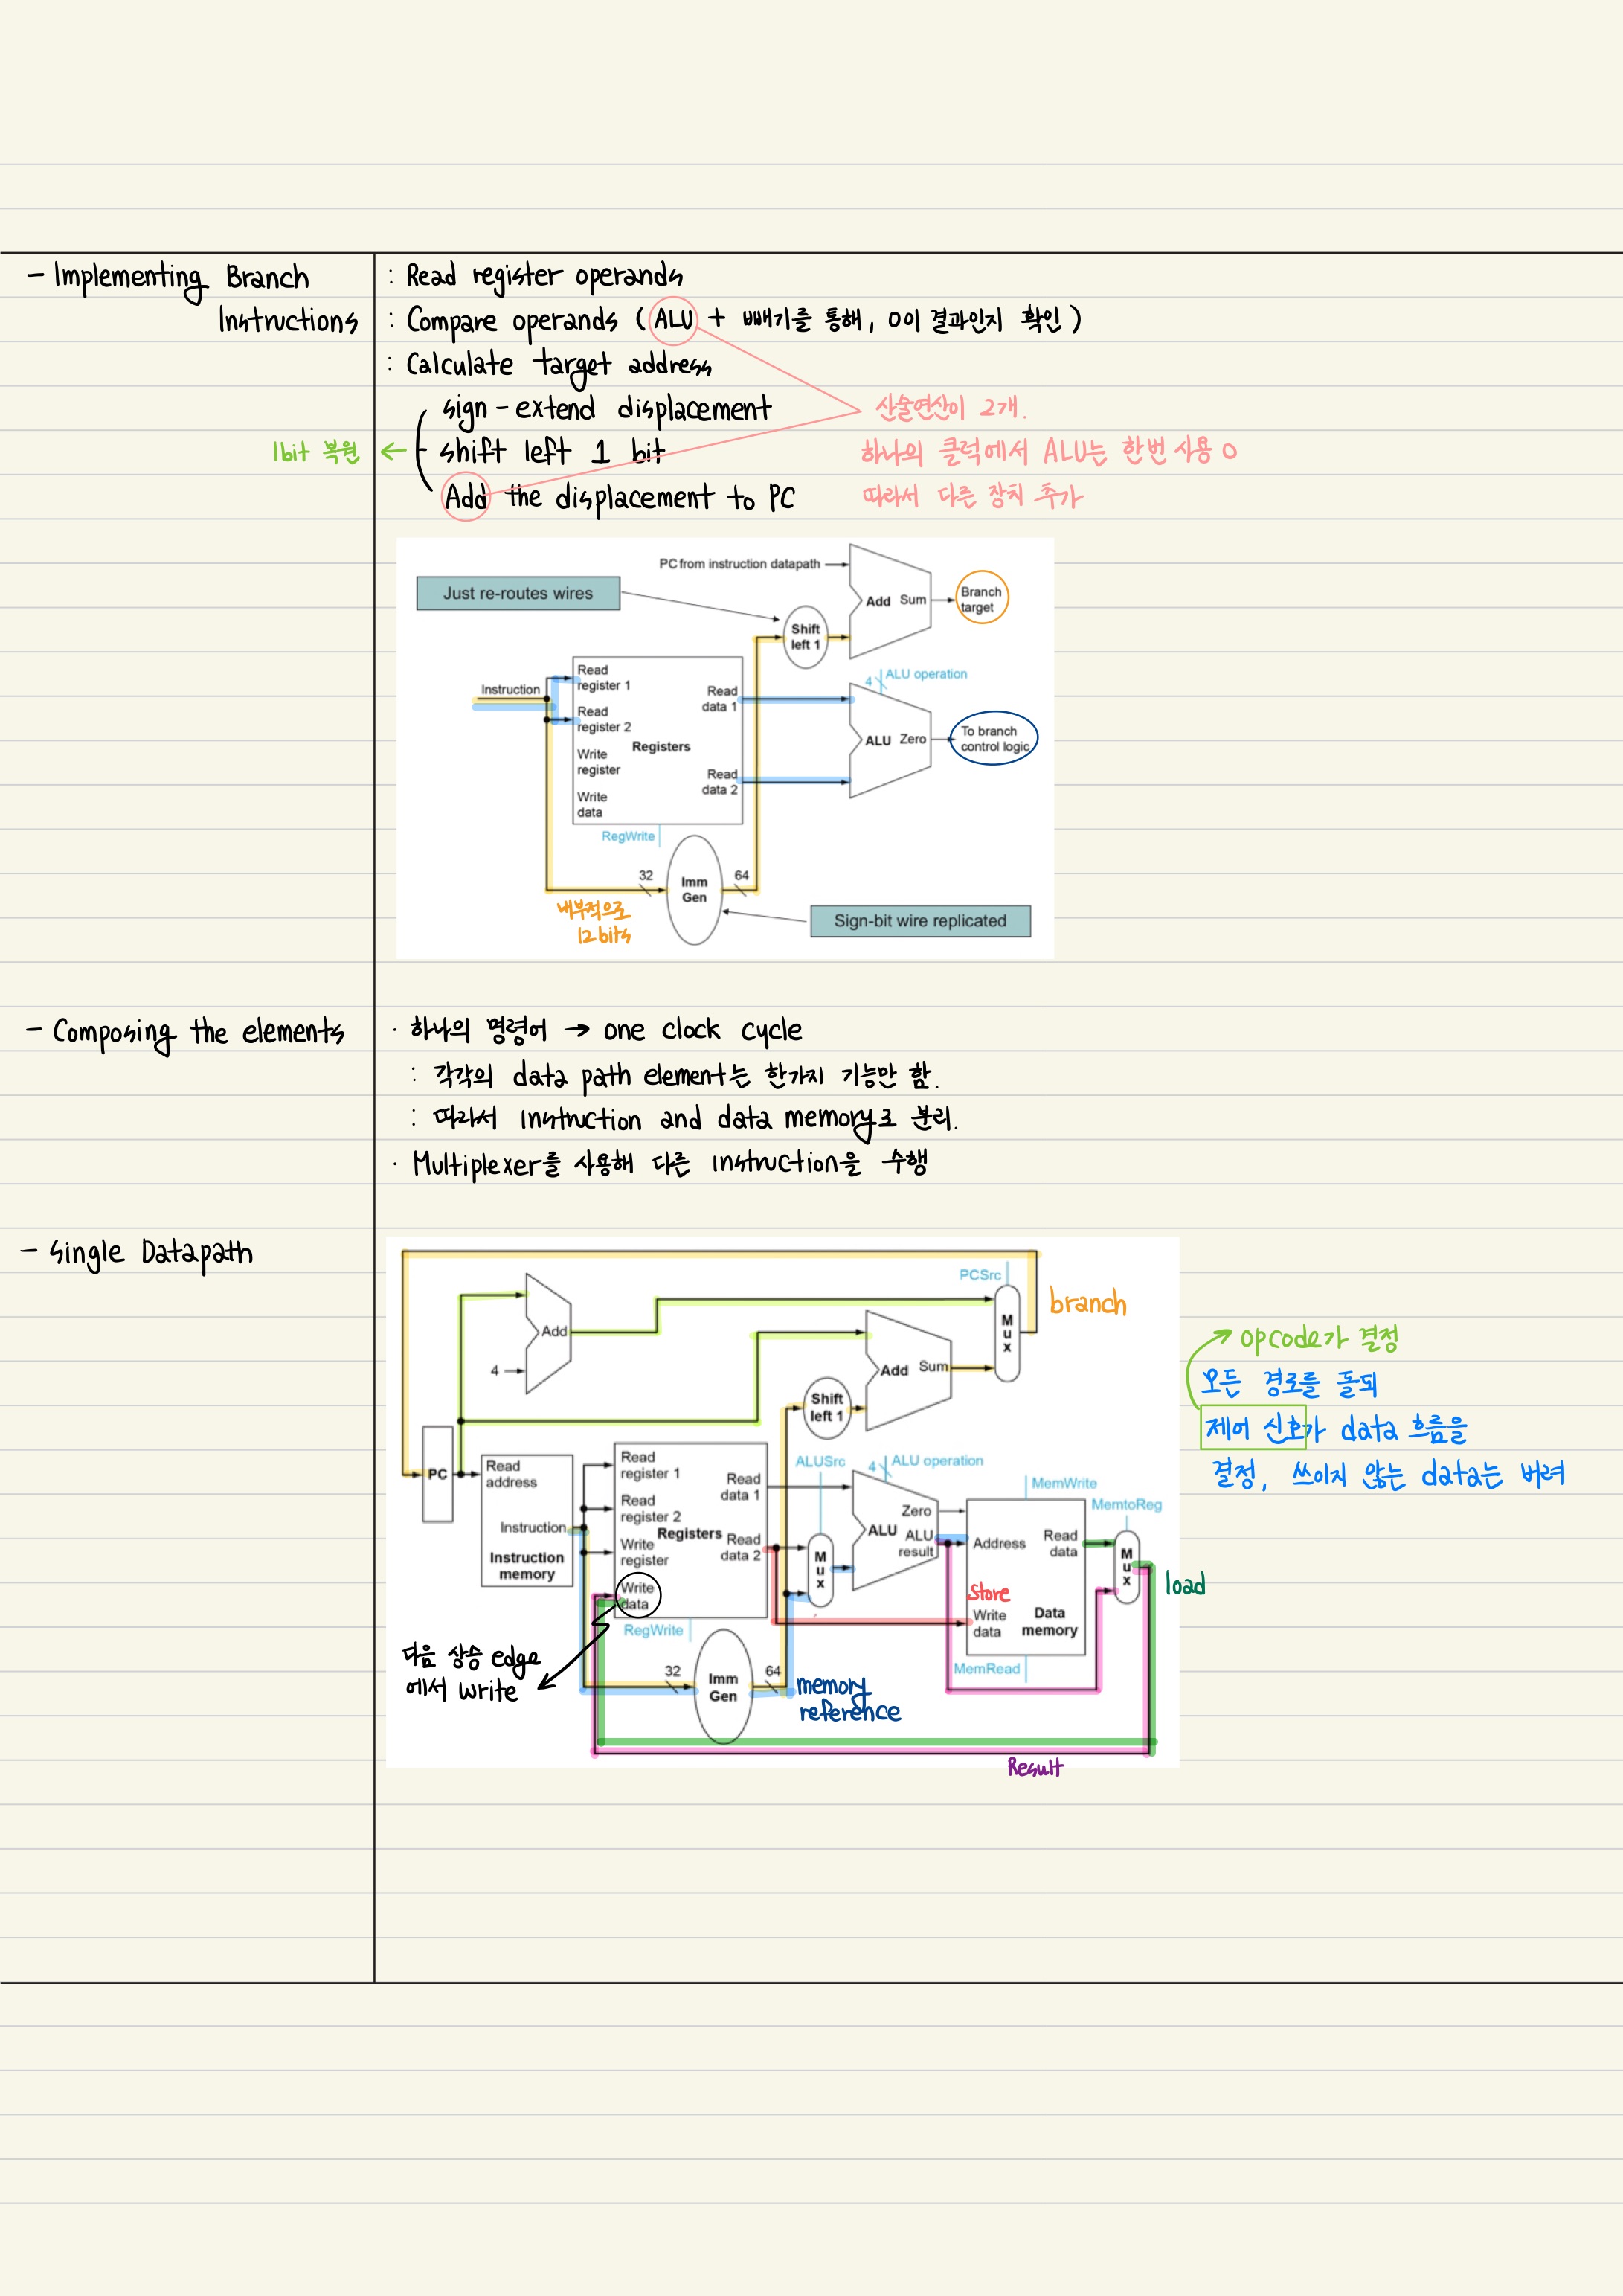 - Implementing Branch
Instructions
: Read register operands
: Compare operands ( ALU + 빼기를 통해, 0이 결과인지 확인 )
: Calculate target address
sign-extend displacement
1bit 복원 ← - shift left 1 bit
Add the displacement to PC
산술연산이 2개.
하나의 클럭에서 ALU는 한번 사용 O
따라서 다른 장치 추가
PC from instruction datapath
Just re-routes wires
Add Sum
Branch
target
Shift
left 1
Instruction
Read
register 1
Read
register 2
Write
register
Write
data
Registers
Read
data 1
Read
data 2
RegWrite
4
ALU operation
ALU Zero
To branch
control logic
32
Imm
Gen
64
내부적으로
12bits
Sign-bit wire replicated
- Composing the elements
· 하나의 명령어 → one clock cycle
: 각각의 data path element는 한가지 기능만 함.
: 따라서 instruction and data memory로 분리.
· Multiplexer를 사용해 다른 instruction을 수행
- Single Datapath
PCSrc
Mux
branch
Add
4
Add Sum
Shift
left 1
PC
Read
address
Instruction
Instruction
memory
Read
register 1
Read
register 2
Write
register
Write
data
Registers
Read
data 1
Read
data 2
RegWrite
ALUSrc
Mux
4
ALU operation
Zero
ALU
ALU
result
MemWrite
Address
Read
data
store
Write
data
Data
memory
MemRead
MemtoReg
Mux
load
32
Imm
Gen
64
memory
reference
Result
다음 상승 edge
에서 write
opcode가 결정
모든 경로를 돌되
제어 신호가 data 흐름을
결정, 쓰이지 않는 data는 버려